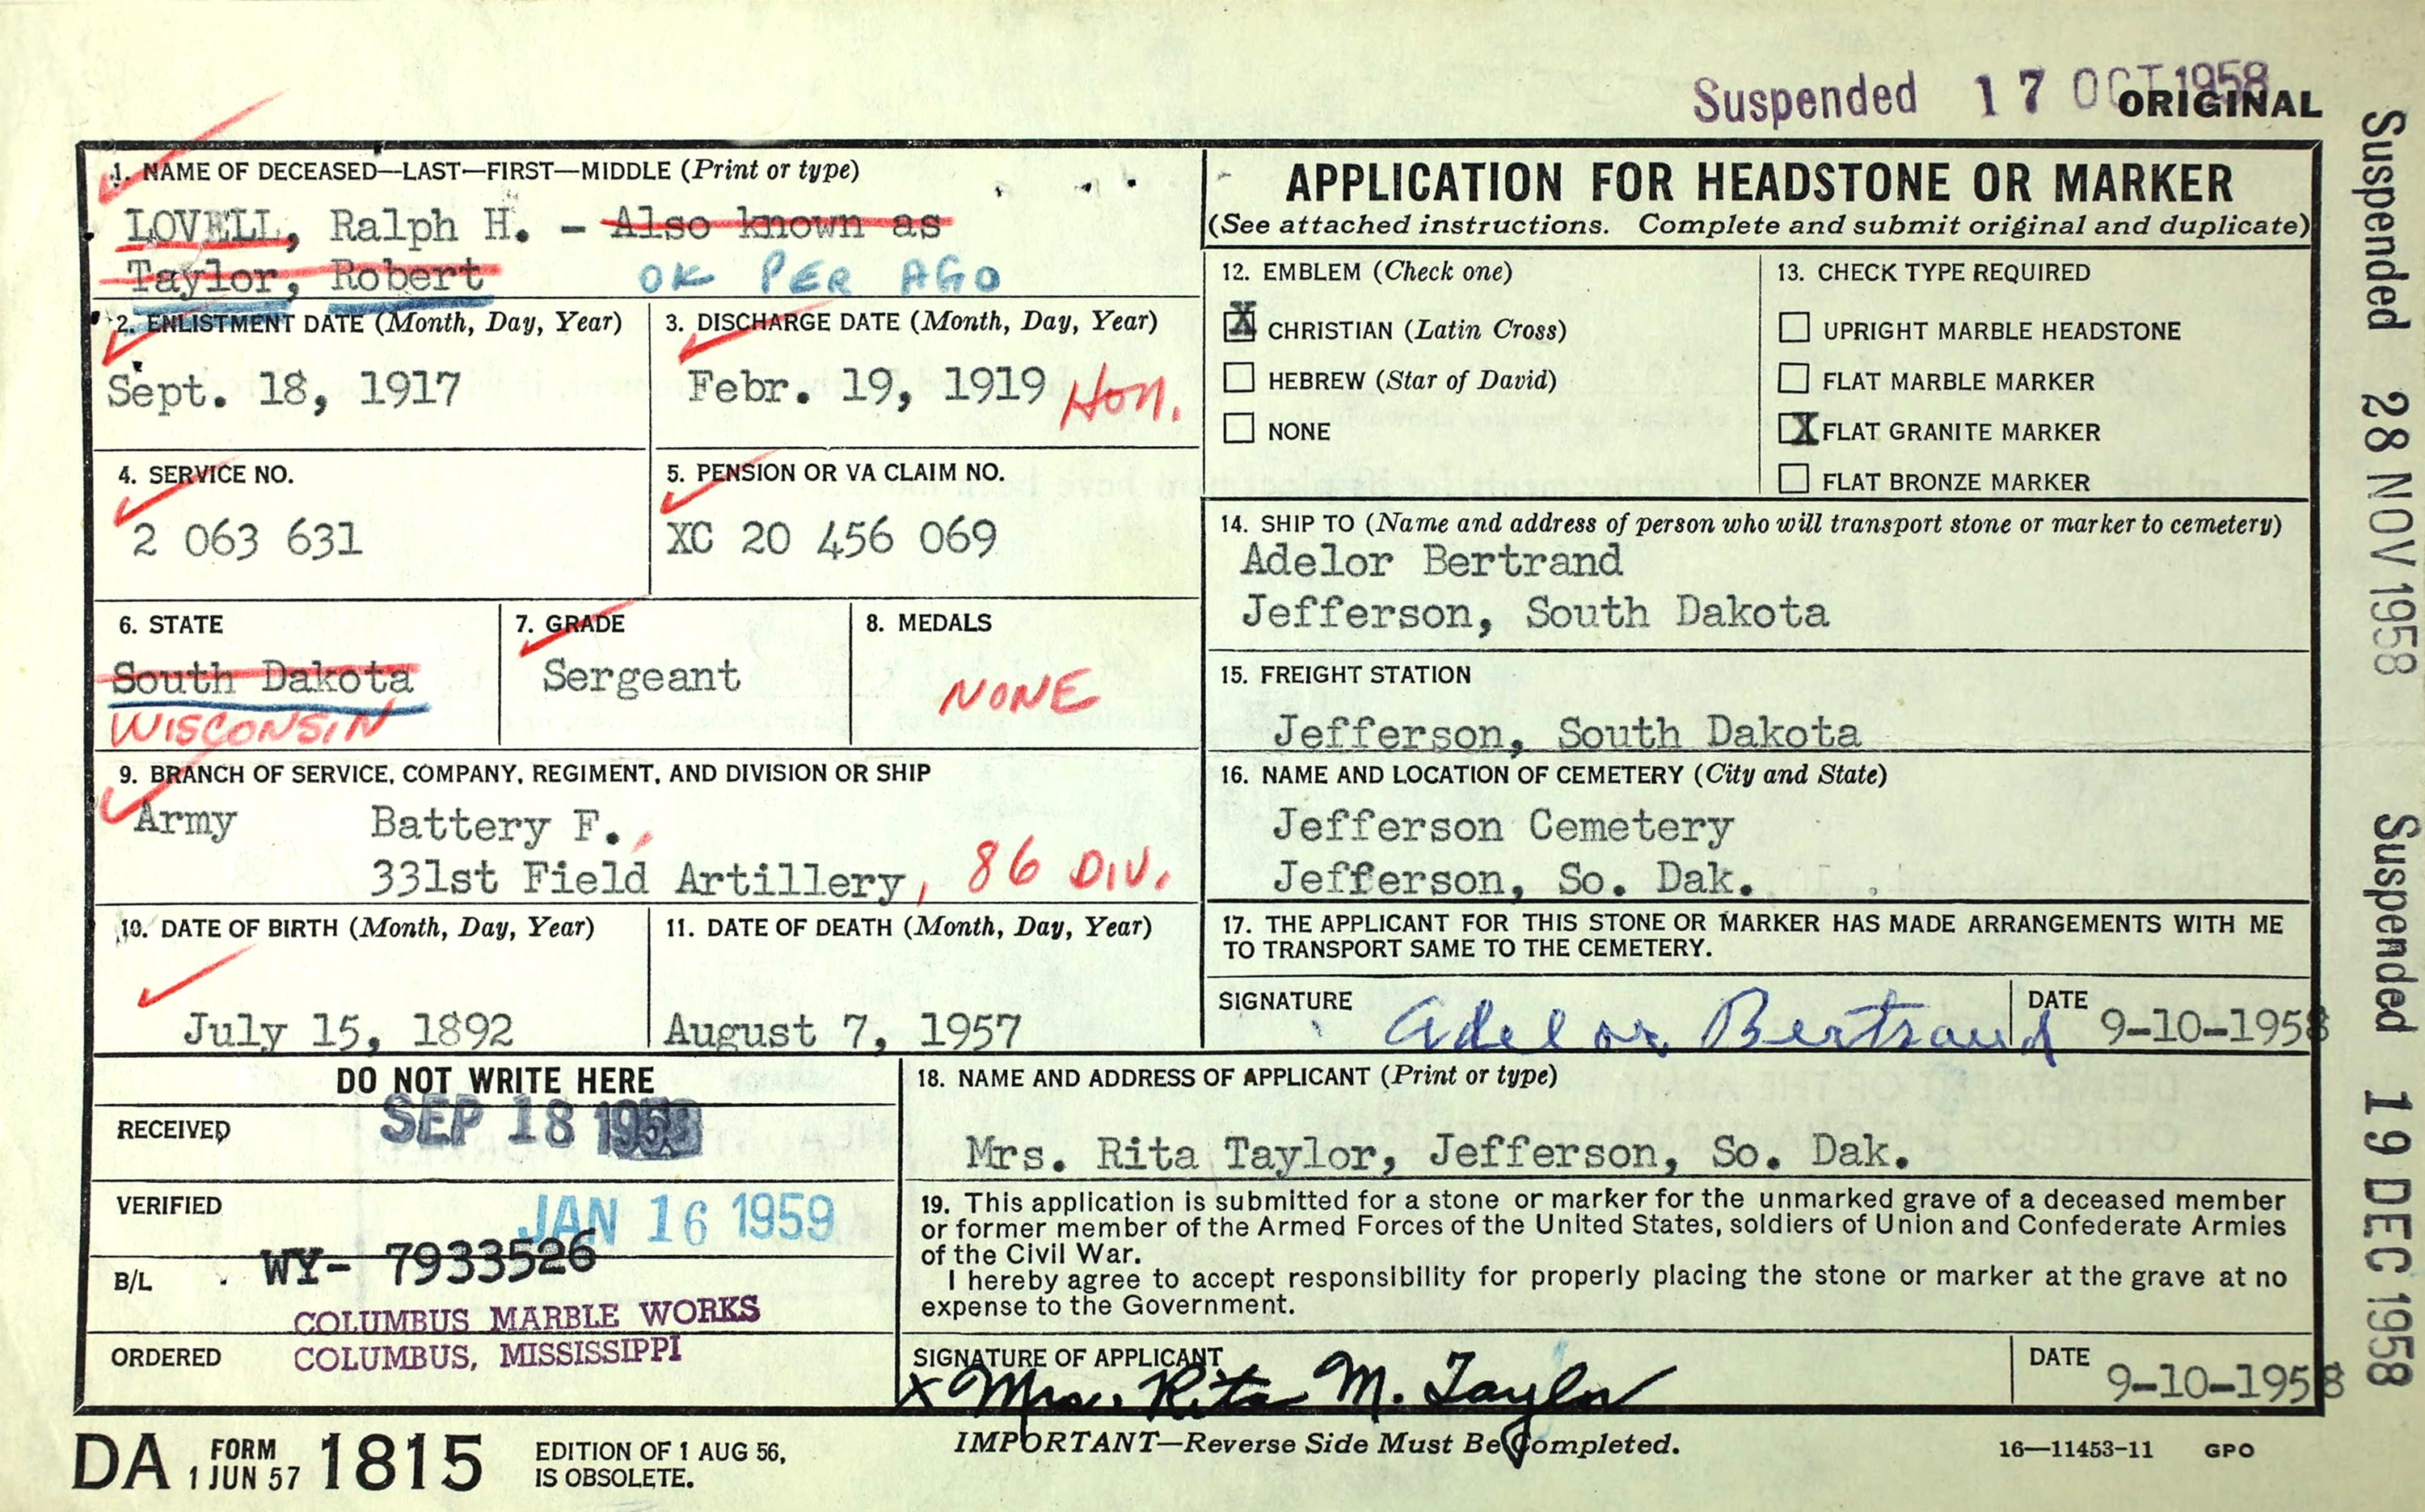 Suspended 17 OCT 1958
ORIGINAL
1. NAME OF DECEASED—LAST—FIRST—MIDDLE (Print or type)
LOVELL, Ralph H. - Also known as
Taylor, Robert OK PER AGO
2. ENLISTMENT DATE (Month, Day, Year)
Sept. 18, 1917
3. DISCHARGE DATE (Month, Day, Year)
Febr. 19, 1919 Hon.
4. SERVICE NO.
2 063 631
5. PENSION OR VA CLAIM NO.
XC 20 456 069
6. STATE
South Dakota
WISCONSIN
7. GRADE
Sergeant
8. MEDALS
NONE
9. BRANCH OF SERVICE, COMPANY, REGIMENT, AND DIVISION OR SHIP
Army Battery F.,
331st Field Artillery, 86 DIV.
10. DATE OF BIRTH (Month, Day, Year)
July 15, 1892
11. DATE OF DEATH (Month, Day, Year)
August 7, 1957
APPLICATION FOR HEADSTONE OR MARKER
(See attached instructions. Complete and submit original and duplicate)
12. EMBLEM (Check one)
X CHRISTIAN (Latin Cross)
HEBREW (Star of David)
NONE
13. CHECK TYPE REQUIRED
UPRIGHT MARBLE HEADSTONE
FLAT MARBLE MARKER
X FLAT GRANITE MARKER
FLAT BRONZE MARKER
14. SHIP TO (Name and address of person who will transport stone or marker to cemetery)
Adelor Bertrand
Jefferson, South Dakota
15. FREIGHT STATION
Jefferson, South Dakota
16. NAME AND LOCATION OF CEMETERY (City and State)
Jefferson Cemetery
Jefferson, So. Dak.
17. THE APPLICANT FOR THIS STONE OR MARKER HAS MADE ARRANGEMENTS WITH ME
TO TRANSPORT SAME TO THE CEMETERY.
SIGNATURE Adelor Bertrand
DATE 9-10-1958
DO NOT WRITE HERE
RECEIVED SEP 18 1958
VERIFIED JAN 16 1959
B/L WY- 7933526
COLUMBUS MARBLE WORKS
ORDERED COLUMBUS, MISSISSIPPI
18. NAME AND ADDRESS OF APPLICANT (Print or type)
Mrs. Rita Taylor, Jefferson, So. Dak.
19. This application is submitted for a stone or marker for the unmarked grave of a deceased member
or former member of the Armed Forces of the United States, soldiers of Union and Confederate Armies
of the Civil War.
I hereby agree to accept responsibility for properly placing the stone or marker at the grave at no
expense to the Government.
SIGNATURE OF APPLICANT
x Mrs. Rita M. Taylor
DATE 9-10-1958
DA FORM 1 JUN 57 1815
EDITION OF 1 AUG 56,
IS OBSOLETE.
IMPORTANT—Reverse Side Must Be Completed.
16—11453-11 GPO
Suspended 28 NOV 1958
Suspended 19 DEC 1958